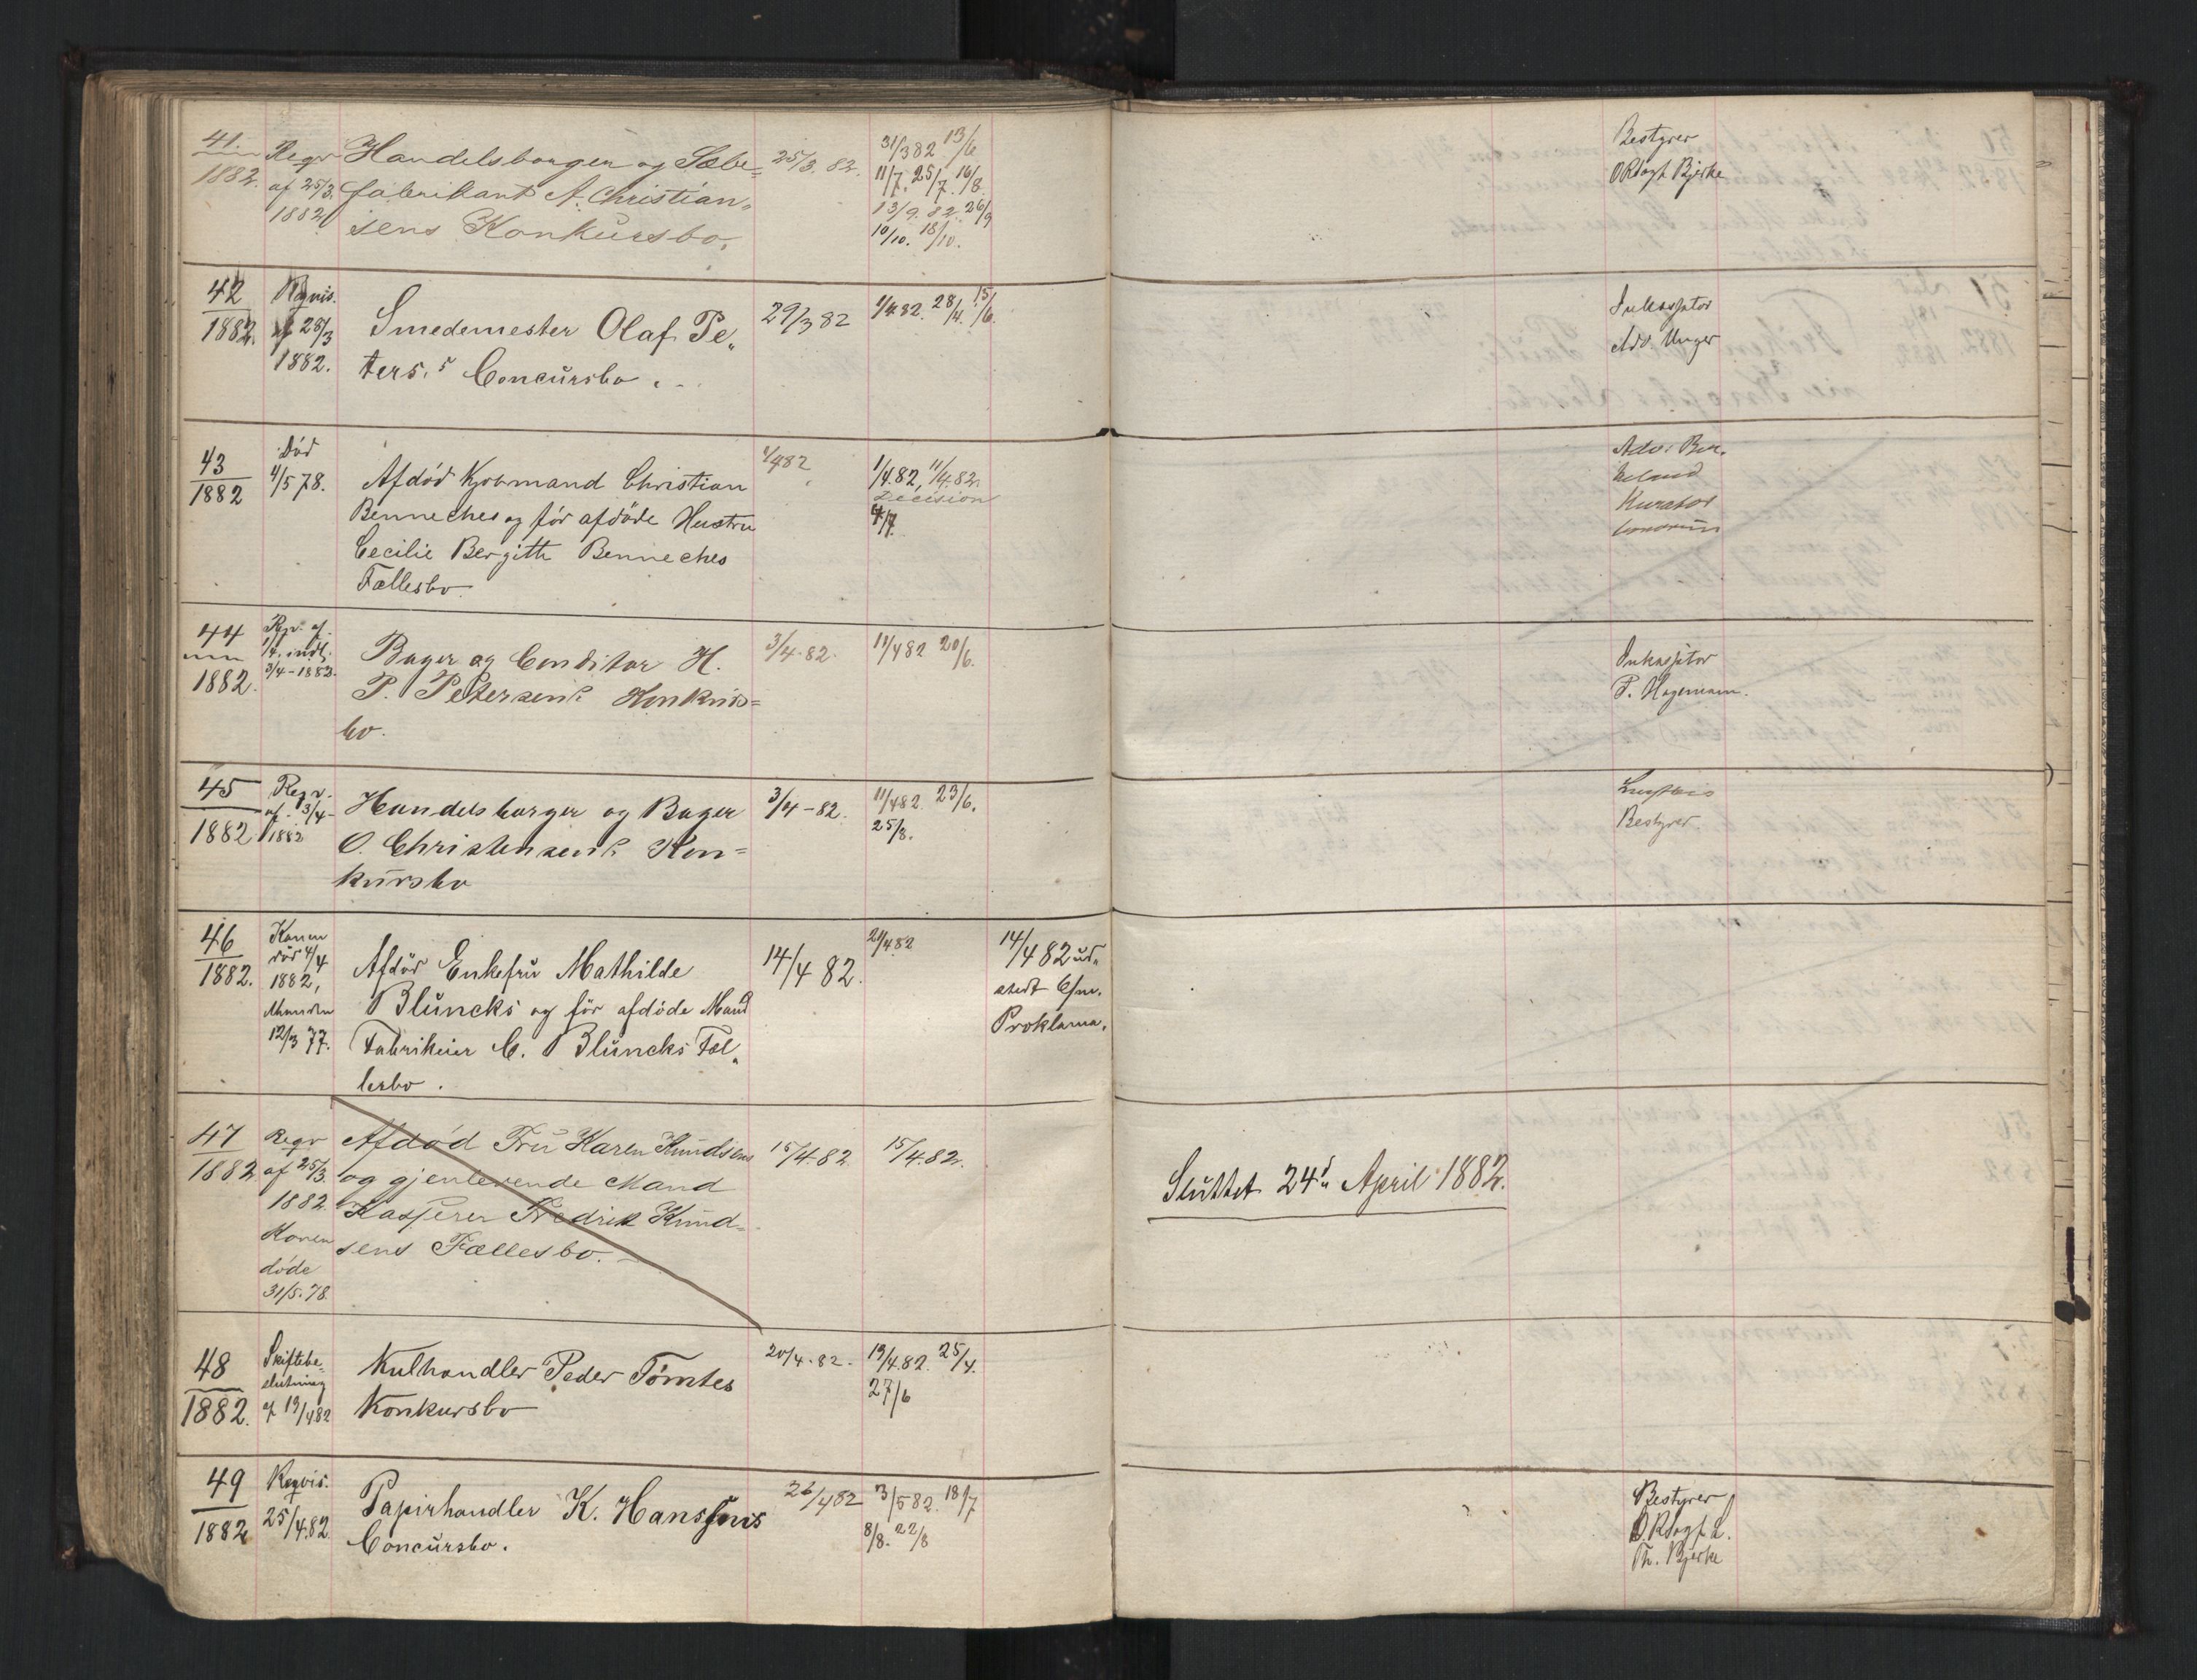 41
1882.
Reqv
af 25/3.
1882
Handelsborger og Sæbe=
fabrikant A. Christian„
sens Konkursbo.
25/3. 82.
31/3 82 13/6
11/7. 25/7. 16/8.
13/9. 82. 26/9
10/10. 18/10.
Bestyrer
ORSagf Bjerke
42
1882.
Reqvis.
af 28/3
1882.
Smedemester Olaf Pe„
ters.s Concursbo.
29/3 82
1/4 82. 28/4. 15/6.
Inkassator
Adv. Unger
43
1882
Död
4/5 78.
Afdöd Kjøbmand Christian
Benneches og för afdöde Hustru
Cecilie Bergitte Benneches
Fællesbo.
1/4 82
1/4.82, 11/4.82.
Decision
4/7.
Adv.
Kurator
44
1882.
Reqv. af
1/4. indl.
3/4-1882.
Bager og Conditor H.
P. Petersens Konkurs=
bo.
3/4.82.
11/4 82 20/6.
Inkassator
P. Hagemann.
45
1882
Reqv.
af 3/4-
1882
Handelsborger og Bager
O. Christensens Kon=
kursbo
3/4-82.
11/4 82. 23/6.
25/8.
Bestyrer.
46
1882.
Konen
död 4/4
1882,
Manden
12/3 77.
Afdöd Enkefru Mathilde
Bluncks og för afdöde Mand
Fabrikeier C. Bluncks Fæl„
lesbo.
14/4 82.
21/4 82
14/4 82 ud„
stedt
Proklama.
47
1882
Reqv
af 25/3.
1882
Konen
döde
31/5.78.
Afdød Fru Karen Knudsens
og gjenlevende Mand
Kasserer Fredrik Knud=
sens Fællesbo.
15/4.82
15/4.82.
Sluttet 24d. April 1882.
48
1882.
Skiftebe„
slutning
af 19/4 82
Kulhandler Peder Tömtes
Konkursbo
20/4.82.
19/4.82. 25/4.
27/6
49
1882
Reqvis.
25/4.82.
Papirhandler K. Hanssens
Concursbo.
26/4 82
3/5 82. 18/7
8/8. 22/8
Bestyrer
O.RSagf.
Th. Bjerke